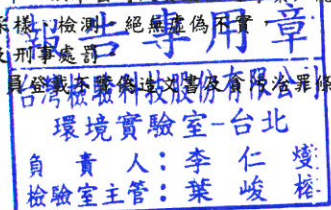 採樣、檢測,絕無虛偽不實
報告專用章
及刑事處罰
員登載不實偽造文書及貪污治罪條
台灣檢驗科技股份有限公司
環境實驗室-台北
負責人:李仁燮
檢驗室主管:葉峻榕